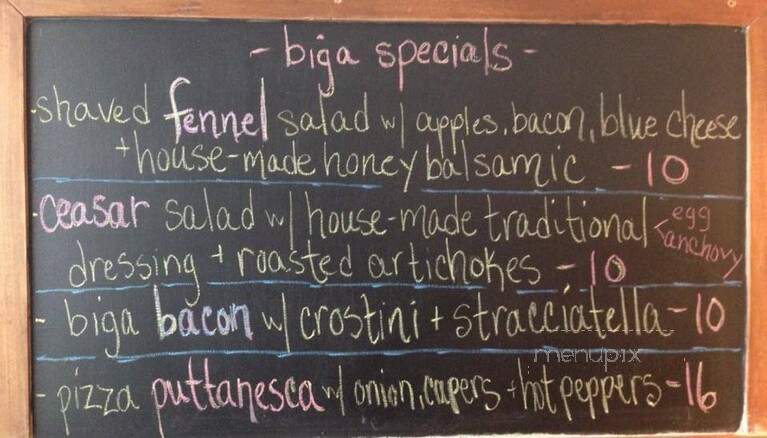 - biga specials -
- shaved fennel salad w/ apples, bacon, blue cheese
+ house-made honey balsamic - 10
- ceasar salad w/ house-made traditional < egg anchovy
dressing + roasted artichokes - 10
- biga bacon w/ crostini + stracciatella - 10
menupix
- pizza puttanesca w/ onion, capers + hot peppers - 16